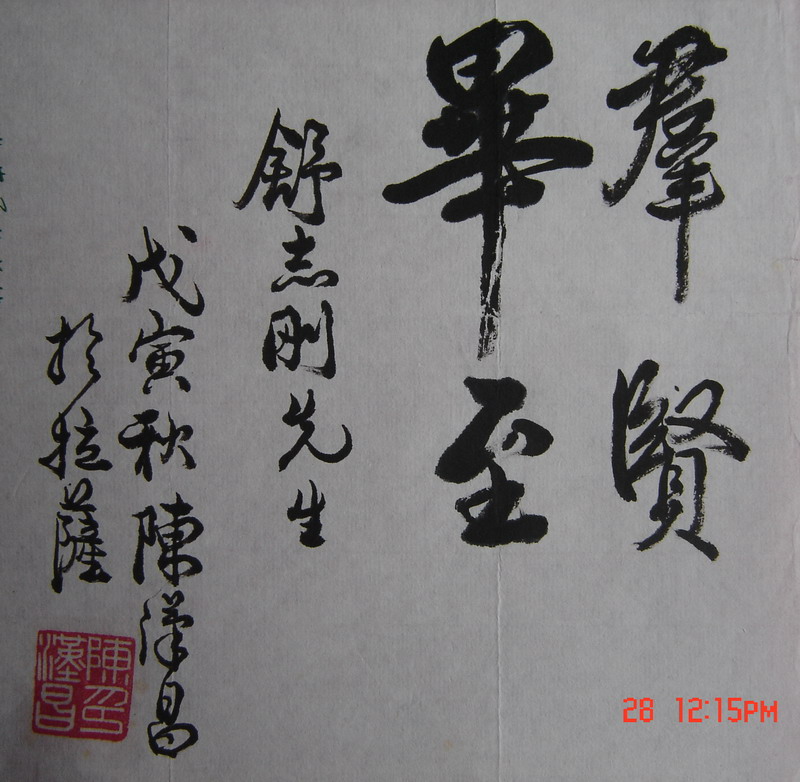 羣賢
畢至
舒志刚先生
戊寅秋陳漢昌
於拉薩
陳漢昌印
28 12:15PM